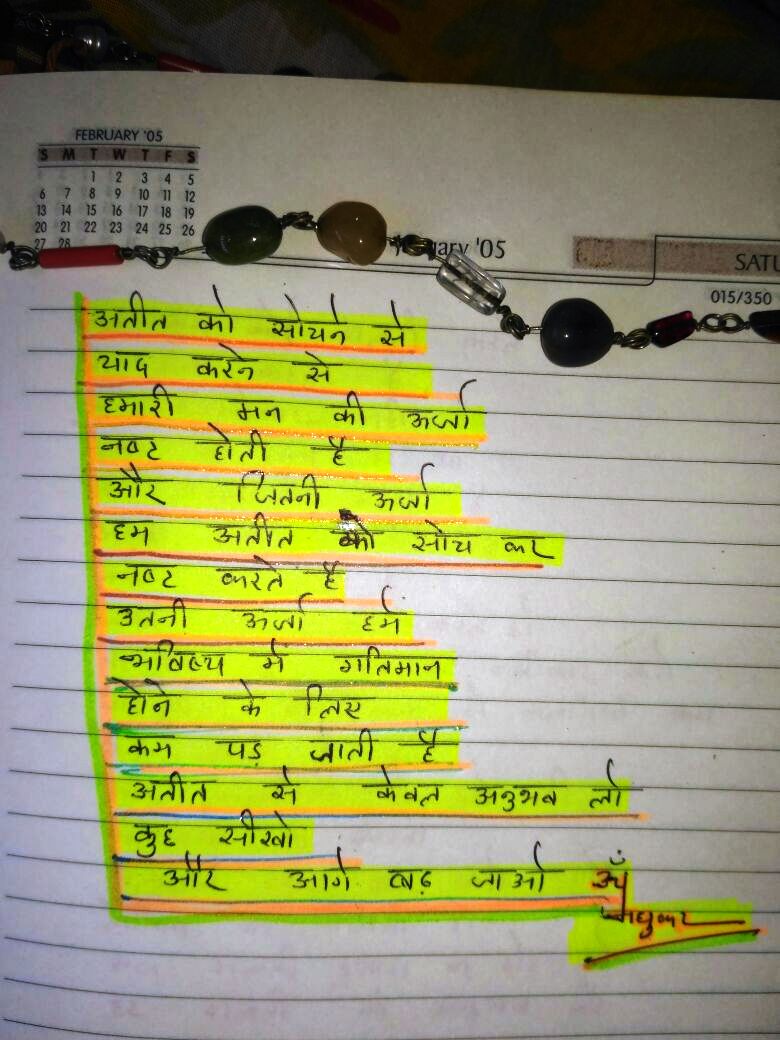 FEBRUARY '05
S M T W T F S
1 2 3 4 5
6 7 8 9 10 11 12
13 14 15 16 17 18 19
20 21 22 23 24 25 26
27 28
uary '05
SATU
015/350
अतीत को सोचने से
याद करने से
हमारी मन की ऊर्जा
नष्ट होती है
और जितनी ऊर्जा
हम अतीत को सोच कर
नष्ट करते है
उतनी ऊर्जा हमे
भविष्य मे गतिमान
होने के लिए
कम पड़ जाती है
अतीत से केवल अनुभव लो
कुछ सीखो
और आगे बढ़ जाओ ॐ
मधुकर